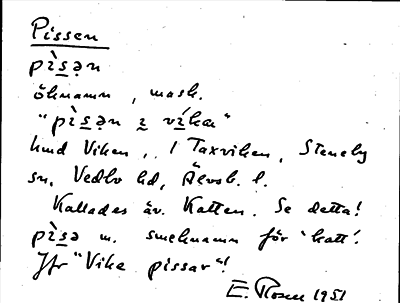 Pissen
pìsən
öknamn, mask.
"pìsən i víka"
hmd Viken, i Taxviken, Steneby
sn, Vedbo hd, Älvsb. l.
Kallades äv. Katten. Se detta!
pìsə m. smeknamn för 'katt'.
Jfr "Vika pissar"!
E. Rosen 1951